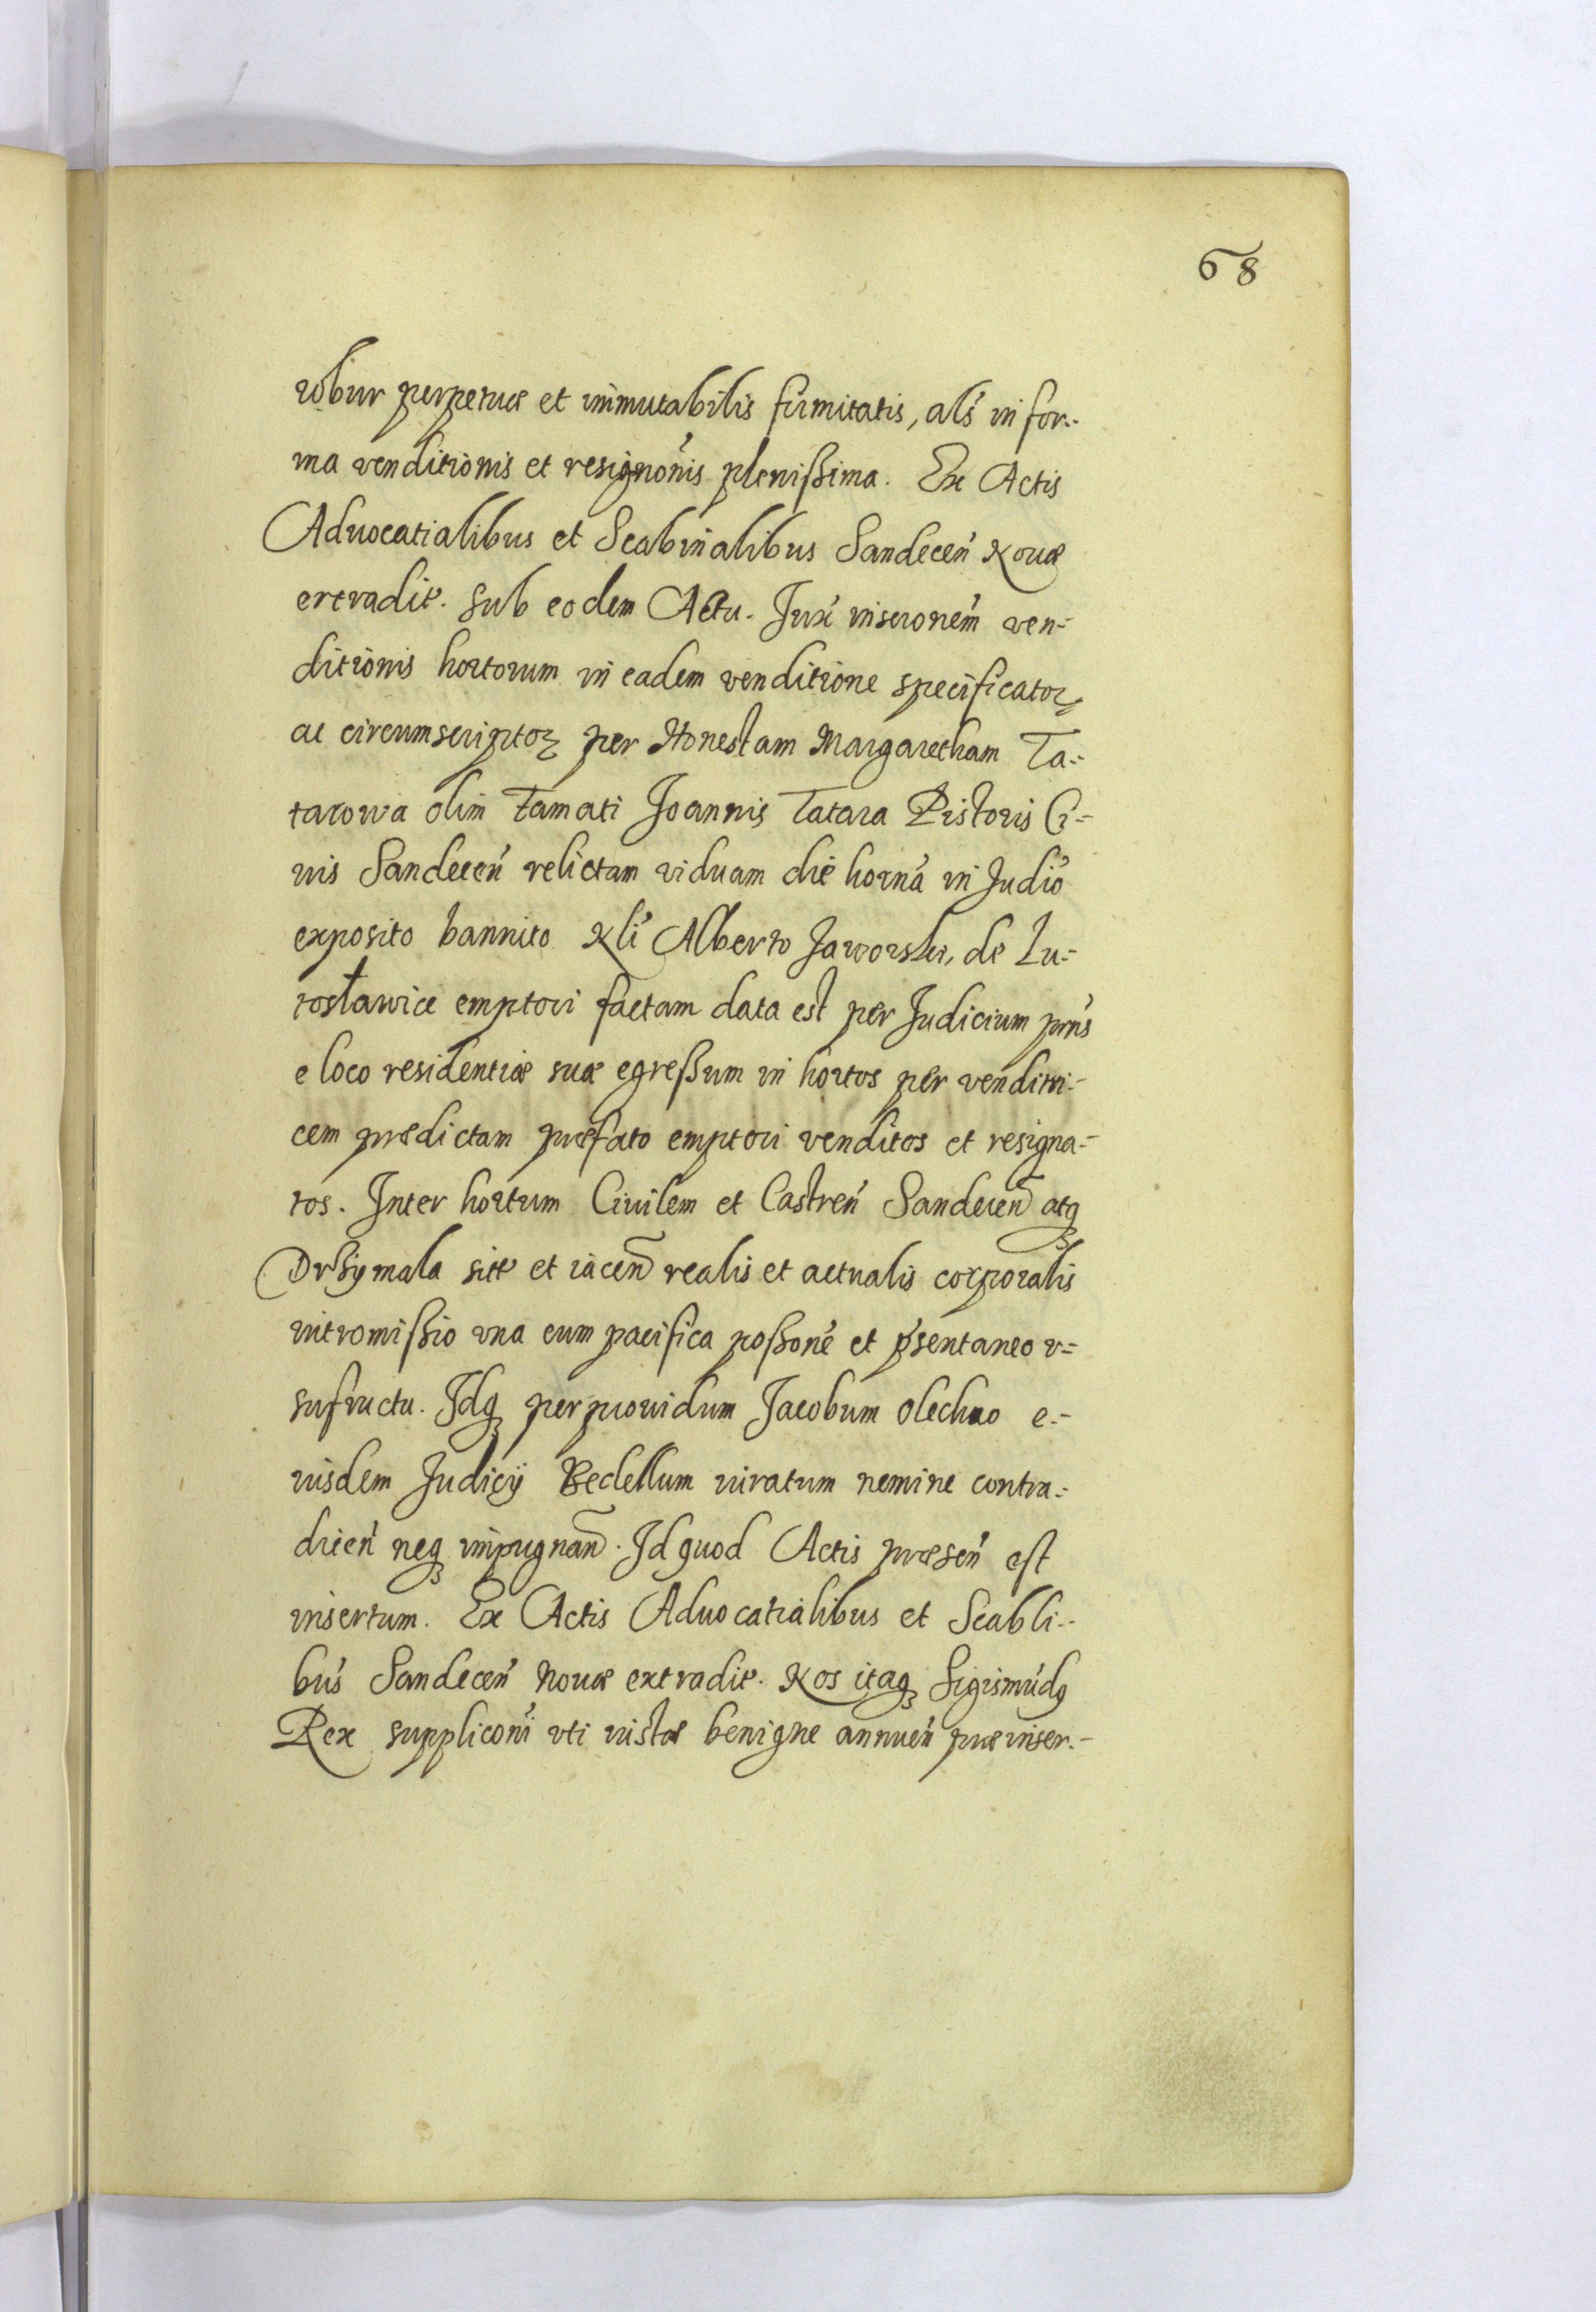 68
robur perpetuæ et immutabilis firmitatis, als in for-
ma venditionis et resignonis plenißima. Ex Actis
Aduocatialibus et Scabinalibus Sandecen Nouæ
extradit. sub eodem Actu. Jux inscronem ven-
ditionis hortorum in eadem venditione specificatoꝝ
ac circumscriptoꝝ per Honestam Margaretham Ta-
tarowa olim famati Joannis Tatara Pistoris Ci-
uis Sandecen relictam viduam die horna in Judio
exposito bannito Nli Alberto Jaworski, de Lu-
rosławice emptori factam data est per Judicium pnns
e loco residentiæ suæ egreßum in hortos per venditri-
cem prædictam præfato emptori venditos et resigna-
tos. Inter hortum Ciuilem et Castren Sandecen atq
Drßymala sitt et iacen realis et actualis corporalis
intromißio vna cum pacifica poßone et psentaneo v-
sufructu. Idq per prouidum Jacobum Olechno e-
iusdem Judicij Bedellum iuratum nemine contra-
dicen neq impugnan. Id quod Actis præsen est
insertum. Ex Actis Aduocatialibus et Scabli-
bus Sandecen Nouæ extradit. Nos itaq Sigismudq
Rex suppliconi vti iustæ benigne annuen præinser-